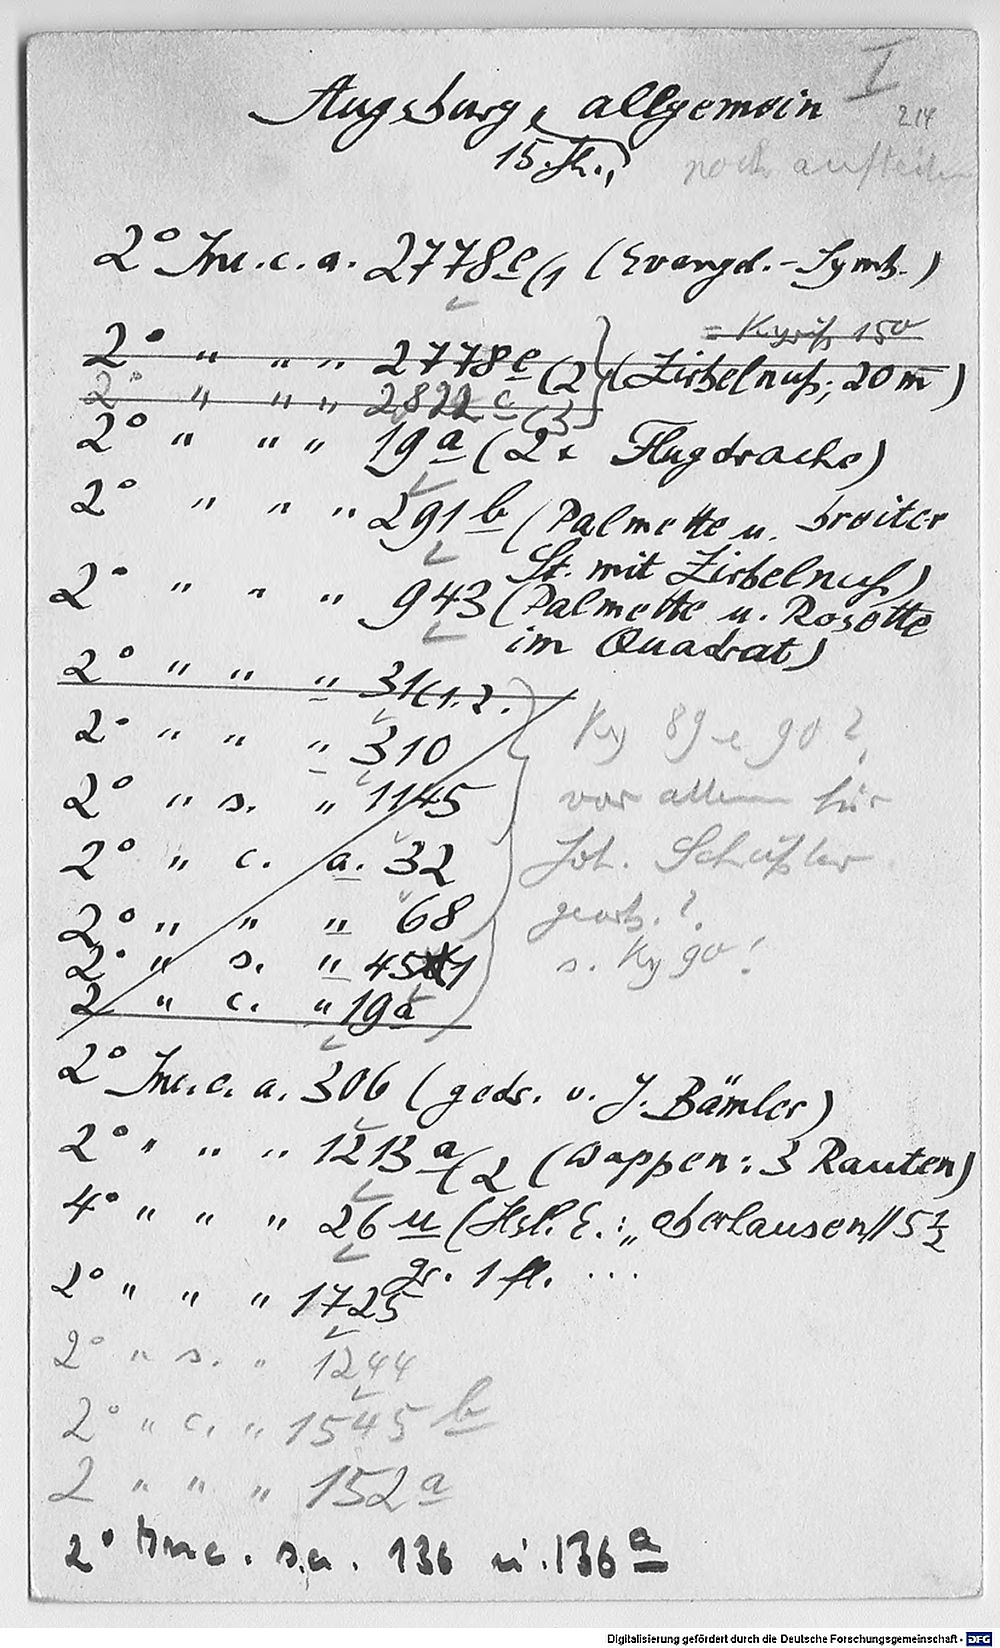 I
Augsburg, allgemein
214
15. Jh.,
noch aufteilen
2° Inc. c. a. 2778 e/1 (Evangel.-Symb.)
= Kyriß 150
2° " " " 2778 e (2 (Zirbelnuß; 20 m)
2° " " " 2822 c (3
2° " " " 19 a (2 x Flugdrache)
2° " " " 291 b (Palmette u. breiter
St. mit Zirbelnuß)
2° " " " 943 (Palmette u. Rosette
im Quadrat)
2° " " " 31(1.2.
2° " " " 310
Ky 89 e 90?
2° " s. " 1145
vor allem für
2° " c. a. 32
Joh. Schüßler
2° " " " 68
gearb.?
2° " s. " 451
s. Ky 90!
2 " c. " 19a
2° Inc. c. a. 306 (gedr. v. J. Bämler)
2° " " " 1213 a (2 (Wappen: 3 Rauten)
4° " " " 26 u (Hsl. E.: „oberhausen // 5 1/2
gr. 1 fl. ...
2° " " " 1725
2° " s. " 1244
2° " c. " 1545 b
2 " " " 152 a
2° Inc. s.a. 136 u. 136 a
Digitalisierung gefördert durch die Deutsche Forschungsgemeinschaft - DFG